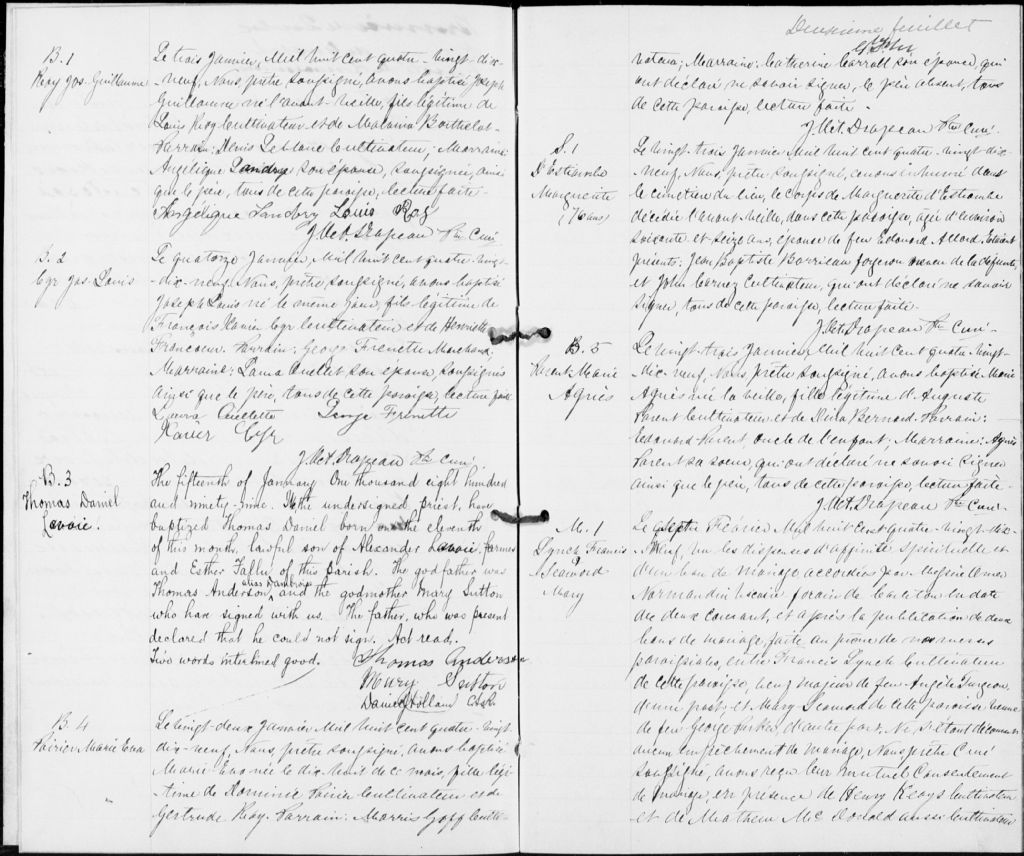 B. 1
Roy Jos. Guillaume
Le trois Janvier, Mil huit cent quatre-vingt-dix-
neuf, Nous, prêtre soussigné, avons baptisé Joseph
Guillaume né l'avant-veille, fils légitime de
Louis Roy Cultivateur et de
Parrain: Denis Leblanc Cultivateur; Marraine
Angélique Landry son épouse, soussignés, ainsi
que le père, tous de cette paroisse, lecture faite.
Angélique Landry Louis Roy
J. McA. Drapeau Ptre Curé
B. 2
Cyr Jos. Louis
Le quatorze Janvier, Mil huit cent quatre-vingt-
dix-neuf, Nous, prêtre soussigné, avons baptisé
Joseph Louis né le même jour, fils légitime de
François Xavier Cyr Cultivateur et de Henriette
Francoeur. Parrain: George Frenette Marchand;
Marraine: Laura Ouellet son épouse, soussignés
ainsi que le père, tous de cette paroisse, lecture faite
Laura Ouellette George Frenette
Xavier Cyr
J. McA. Drapeau Ptre Curé
B. 3
Thomas Daniel
Lavoie.
The fifteenth of January One thousand eight hundred
and ninety-nine. We the undersigned priest, have
baptized Thomas Daniel born on the eleventh
of this month, lawful son of Alexander Lavoie, farmer
and Esther Fallu of this parish. The godfather was
alias Dambroise
Thomas Anderson and the godmother Mary Sutton
who have signed with us. The father, who was present
declared that he could not sign. Act read.
Two words interlined good. Thomas Anderson
Mary Sutton
Daniel J Holland
B 4
Poirier Marie Eva
Le vingt-deux Janvier Mil huit cent quatre-vingt
dix-neuf, Nous, prêtre soussigné, avons baptisé
Marie Eva née le dix-huit de ce mois, fille légi-
-time de Dominic Poirier Cultivateur et de
Gertrude Roy. Parrain: Morris Goff Culti-
Deuxième feuillet
vateur; Marraine: Catherine Carroll son épouse, qui
ont déclaré ne savoir signer, le père absent, tous
de cette paroisse, lecture faite.
J. McA. Drapeau Ptre Curé
S. 1
D'Estimbe
Marguerite
(76 ans)
Le vingt-trois Janvier Mil huit cent quatre-vingt-dix-
neuf, Nous, prêtre soussigné, avons inhumé dans
le cimetière du lieu, le corps de Marguerite
décédée l'avant-veille, dans cette paroisse, agée d'environ
soixante et seize ans, épouse de feu Edouard Allard. Etaient
présents: Jean Baptiste Barrieau forgeron neveu de la défunte,
et John Carney Cultivateur, qui ont déclaré ne savoir
signer, tous de cette paroisse, lecture faite.
J. McA. Drapeau Ptre Curé
B. 5
Parent Marie
Agnès
Le vingt-trois Janvier Mil huit cent quatre-vingt-
dix-neuf, Nous prêtre soussigné, avons baptisé Marie
Agnès née la veille, fille légitime d'Auguste
Parent Cultivateur et de Bernard. Parrain:
Edouard Parent, oncle de l'enfant; Marraine: Agnès
Parent sa soeur, qui ont déclaré ne savoir signer
ainsi que le père, tous de cette paroisse, lecture faite.
J. McA. Drapeau Ptre Curé
M. 1
Lynch Francis
&
Leonard
Mary
Le Février Mil huit cent quatre-vingt-dix-
neuf, Vu les dispenses d'affinité spirituelle et
d'un ban de mariage accordées par Messire
Normandin Vicaire forain de Carleton en date
du deux courant, et après la publication de deux
bans de mariage, faite au prône de nos messes
paroissiales, entre Francis Lynch Cultivateur
de cette paroisse, veuf majeur de feu Angèle
d'une part, et Mary Leonard de cette paroisse veuve
de feu George d'autre part. Ne s'étant découvert
aucun empêchement de mariage, Nous prêtre Curé
soussigné, avons reçu leur mutuel consentement
de mariage, en présence de Henry Keays Cultivateur
et de Mathew McDonald aussi Cultivateur